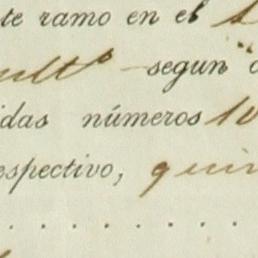 te ramo en el
ult° segun
idas números 10
espectivo, quin